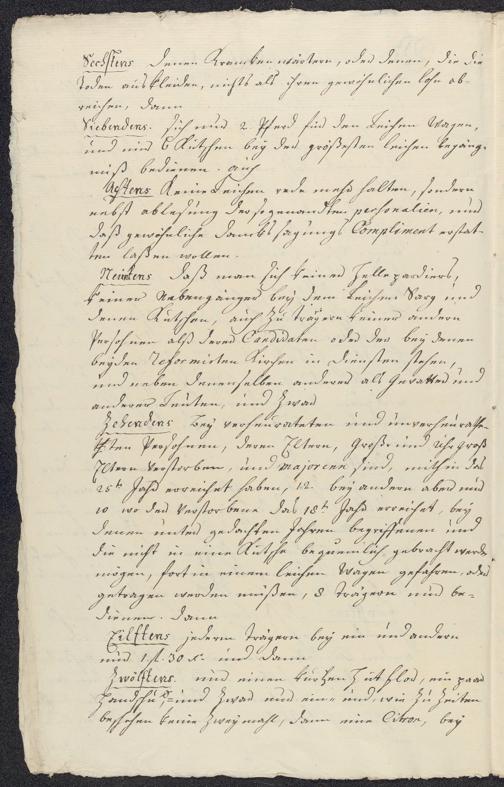 Sechstens denen Krancken wärtern, oder denen, die die
Toden auskleiden, nichts als ihren gewöhnlichen Lohn ab-
reichen, dann
Siebendens. sich nur 2. Pferd für den Leichen Wagen,
und nur 6 Kutschen bey den größesten Leichen begäng-
niß bedienen. auch
Achtens Keine Leichen rede mehr halten, sondern
nebst ablesung der sogenandten personalien, nur
das gewöhnliche Dancksagungs Compliment erstat-
ten laßen wollen.
Neuntens daß man sich keiner Hellepardiers,
keiner Nebengänger bey dem Leichen Sarg und
denen Kutschen, auch zu trägern keiner andern
Persohnen alß derer Candidaten oder der bey denen
beyden Reformirten Kirchen in Diensten stehen,
und neben denenselben anderer als Gevatter und
anderer Leuten, und zwar
Zehendens bey verheurateten und unverheurathe-
ten Persohnen, deren Eltern, Groß- und Uhr Groß
Eltern verstorben, und majorenn sind, mithin das
25te Jahr erreichet haben, 12. bey andern aber nur
10 wo der Verstorbene das 18te Jahr erreichet, bey
denen unter gedachten Jahren begriffenen und
die nicht in eine Kutsche bequemlich gebracht werden
mögen, fort in einem Leichen Wagen gefahren, oder
getragen werden müßen, 8 Trägern nur be-
dienen. dann
Eilftens jederm Trägern bey ein und andern
nur 1 fl. 30 x. und dann
Zwölftens. nur einen kurtzen Hut flor, ein paar
Handschu, und zwar nur ein- und, wie zu Zeiten
beschehen keine zweymahl, dann eine Citron, bey